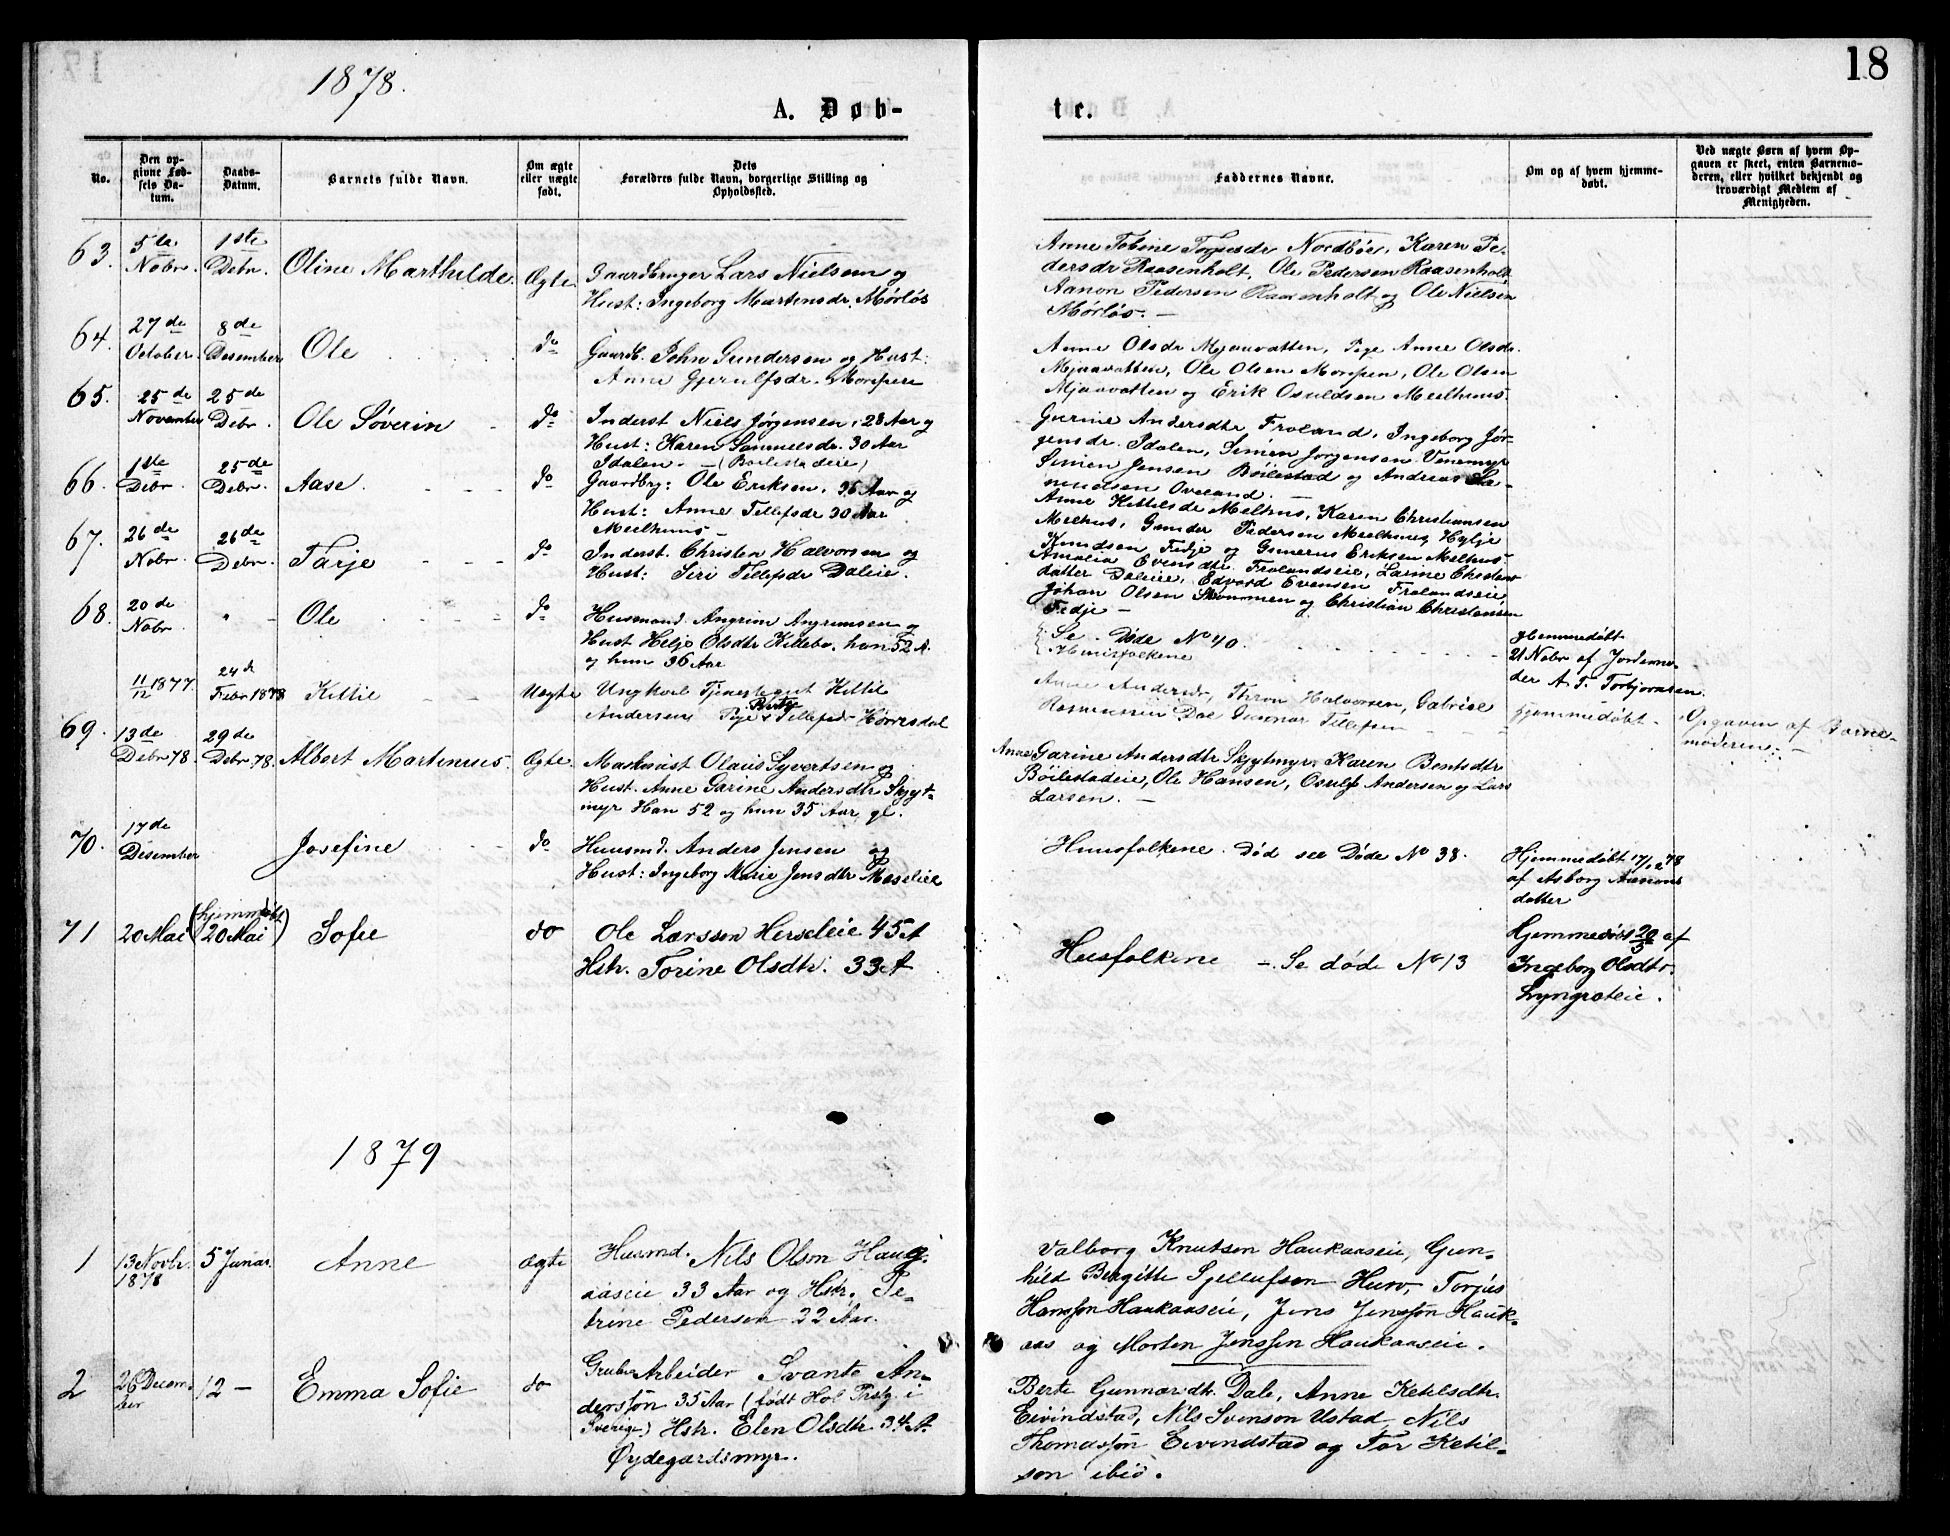 1878.
18
A. Døb-
te.
No.
Den op-
givne Fød-
sels Da-
tum.
Daabs-
Datum.
Barnets fulde Navn.
Om ægte
eller uægte
født.
Dets
Forældres fulde Navn, borgerlige Stilling og
Opholdssted.
Faddernes Navne.
Om og af hvem hjemme-
døbt.
Ved uægte Børn af hvem Op-
gaven er skeet, enten Barnemo-
deren, eller hvilket bekjendt og
troværdigt Medlem af
Menigheden.
63.
5te
Nobr.
1ste
Debr.
Oline Marthilde.
Ægte
Gaardbruger Lars Nielsen og
Hust: Ingeborg Martensdr. Mørløs
Anne Tobine Nordbøe, Karen Pe-
dersdr Raasenholt, Ole Pedersen Raasenholt
Aanon Pedersen Raasenholt og Ole Nielsen
Mørløs. -
64.
27de
October.
8de
Desember
Ole
do
Gaardb. John Gundersen og Hust:
Anne Gjerulfsdr.
Anne Olsdr Mjaavatten, Pige Anne Olsdr.
Mjaavatten, Ole Olsen, Ole Olsen
Mjaavatten og Erik Osuldsen Mælhuus.
65.
25de
November
25de
Debr.
Ole Søverin
do
Inderst Niels Jørgensen, 28 Aar og
Hust: Karen Samuelsdr. 30 Aar
Idalen. - (Boilestadeie)
Gurine Andersdtr Froland, Ingeborg Jør-
gensdr. Idalen, Simen Jørgensen
Simen Jensen Bøilestad og Andreas Sa-
muelsen Oveland.
66.
1ste
Debr.
25de
Debr.
Aase.
do
Gaardbrg: Ole Eriksen, 36 Aar og
Hust: Anne Tellefsdr 30 Aar
Mælhuus
Anne Kittelsdr Mælhus, Karen Christiansen
Mælhus, Gunder Pedersen Mælhuus,
Knudsen Fedje og Eriksen Mælhus.
67.
26de
Nobr.
26de
Debr.
Tarje
do
Inderst. Christen Halvorsen og
Hust: Siri Tellefsdr Daleie.
Amalia Evensdtr. Frolandseie, Larine Christens-
datter Daleie, Edvard Evensen Frolandseie
Johan Olsen og Christian Christensen
Fedje -
68.
20de
Nobr.
" -
Ole
do
Husmand. Angrim Angrimsen og
Hust Helje Olsdtr Kittebu, han 52 A.
og hun 36 Aar
Se Døde No 40.
Huusfolkene
Hjemmedøbt
21 Nobr af Jordemo-
der A. T. Torbjørnsen.
11/12 1877.
24d
Febr 1878
Kittil
Uægte
Ungkarl Tjenestegut Kittil
Andersen Pige Tellefsdr
Anne Andersdr, Thron Halvorsen, Gabriel
Rasmussen Dal Gunnar Tellefsen
Hjemmedøbt -
Opgaven af Barne-
moderen. -
69.
13de
Debr 78.
29de
Debr. 78.
Albert Martinius.
Ægte.
Olaus Syvertsen og
Hust. Anne Garine Andersdtr Skyt-
myr Han 52 og hun 35 Aar gl.
Anne Garine Andersdtr Skytmyr. Karen Bentsdtr
Bøilestadeie, Ole Hansen, Osulf Andersen og Lars
Larsen. -
70.
17de
Desember
Josefine
do
Huusmd. Anders Jensen og
Hust: Ingeborg Marie Jensdtr
Huusfolkene. Død see Døde No 38.
Hjemmedøbt 17/12 78
af Asborg Aanons
datter
71
20 Mai
(hjemmdøbt
20 Mai)
Sofie
do
Ole Larssen Herseleie 45 A
Hstr. Torine Olsdtr. 33 A
Husfolkene - Se døde No 13
Hjemmedøbt 20/5 af
Ingeborg Olsdtr.
Lyngroteie.
1879
1
13 Novbr.
1878
5 Januar
Anne
ægte
Husmd. Nils Olson Haug-
aaseie 33 Aar og Hstr. Pe-
trine Pedersen 22 Aar.
Valborg Knutsen Haukaaseie, Gun-
hild Birgitte Huro, Torjus
Hansson Haukaaseie, Jens Jensson Hauk-
aas og Morten Jenssen Haukaaseie.
2
26 Decem-
ber
12 -
Emma Sofie
do
Grube Arbeider Svante An-
derssøn 35 Aar (født Hol Prstg. i
Sverige) Hstr. Elen Olsdtr 34 A.
Øydegardsmyr.
Berte Gunnarsdtr. Dale, Anne Ketilsdtr.
Eivindstad, Nils Svenson Ustad, Nils
Thomassøn Eivindstad og Tor Ketil-
son ibid.